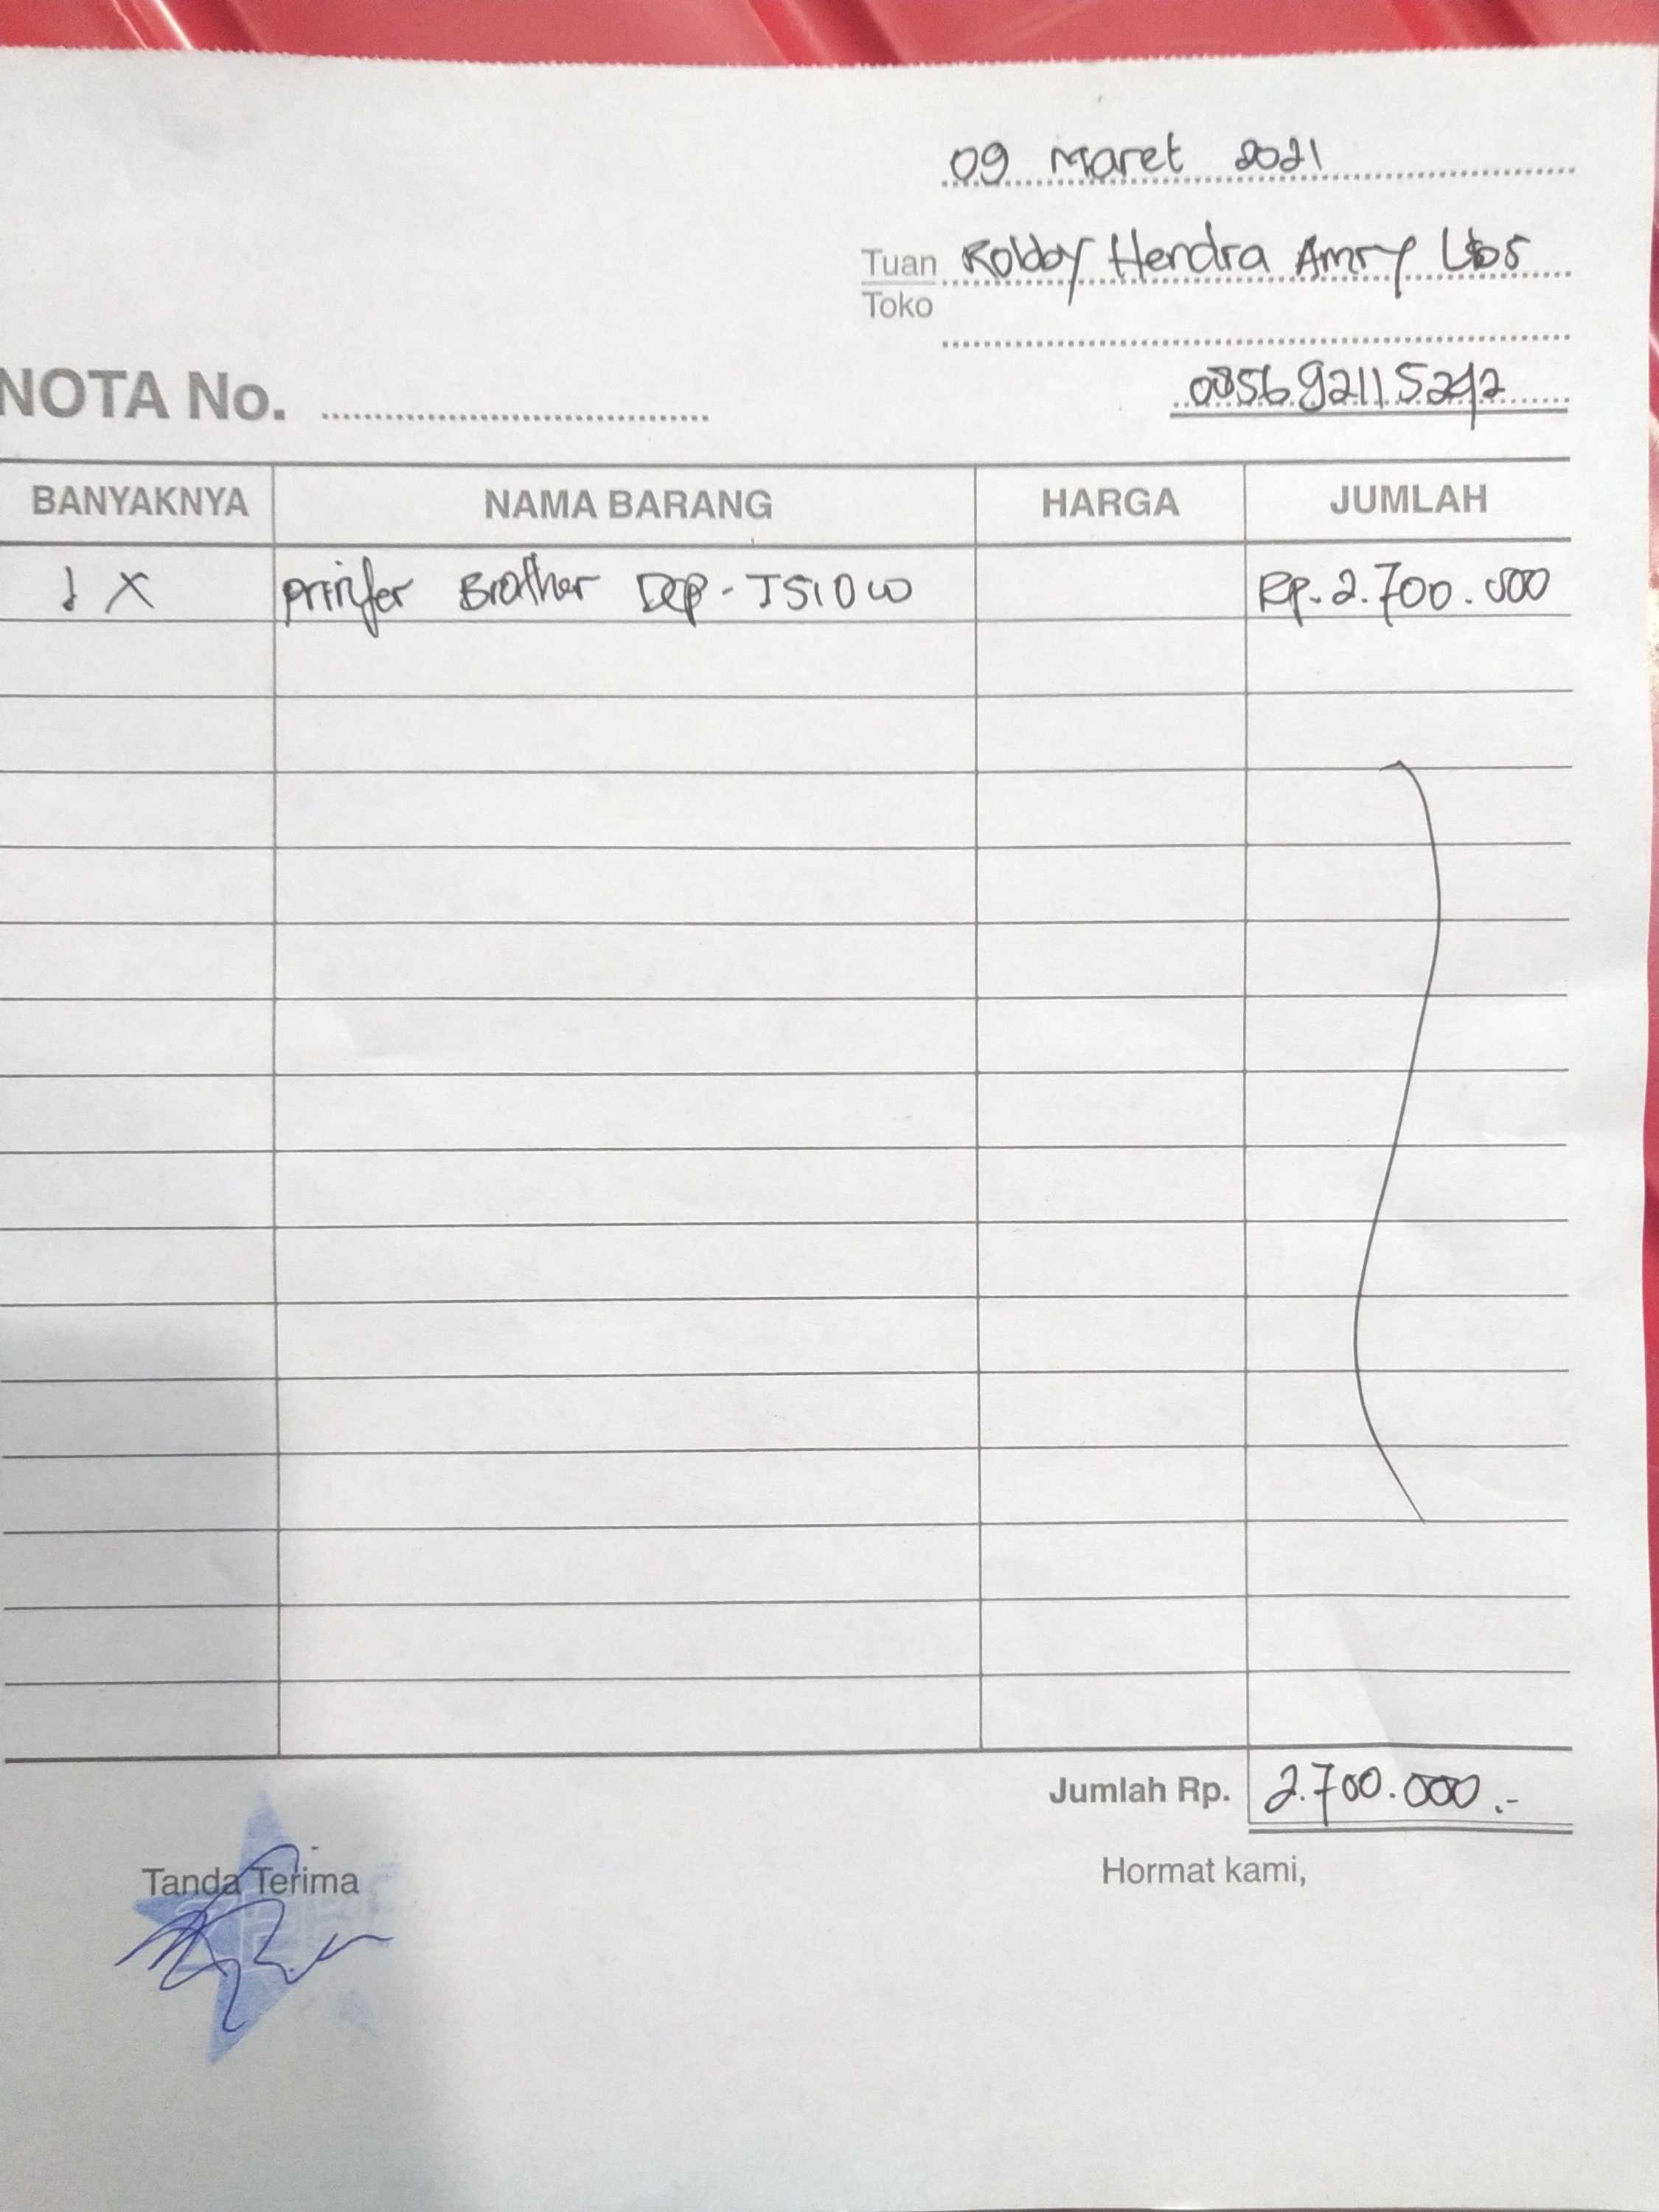 09 Maret 2021
Tuan Robby Hendra Amry Lbs
Toko
NOTA No. 085692115242
BANYAKNYA NAMA BARANG HARGA JUMLAH
1 X Printer Brother Dcp-T510W Rp. 2.700.000
Jumlah Rp. 2.700.000.-
Tanda Terima Hormat kami,